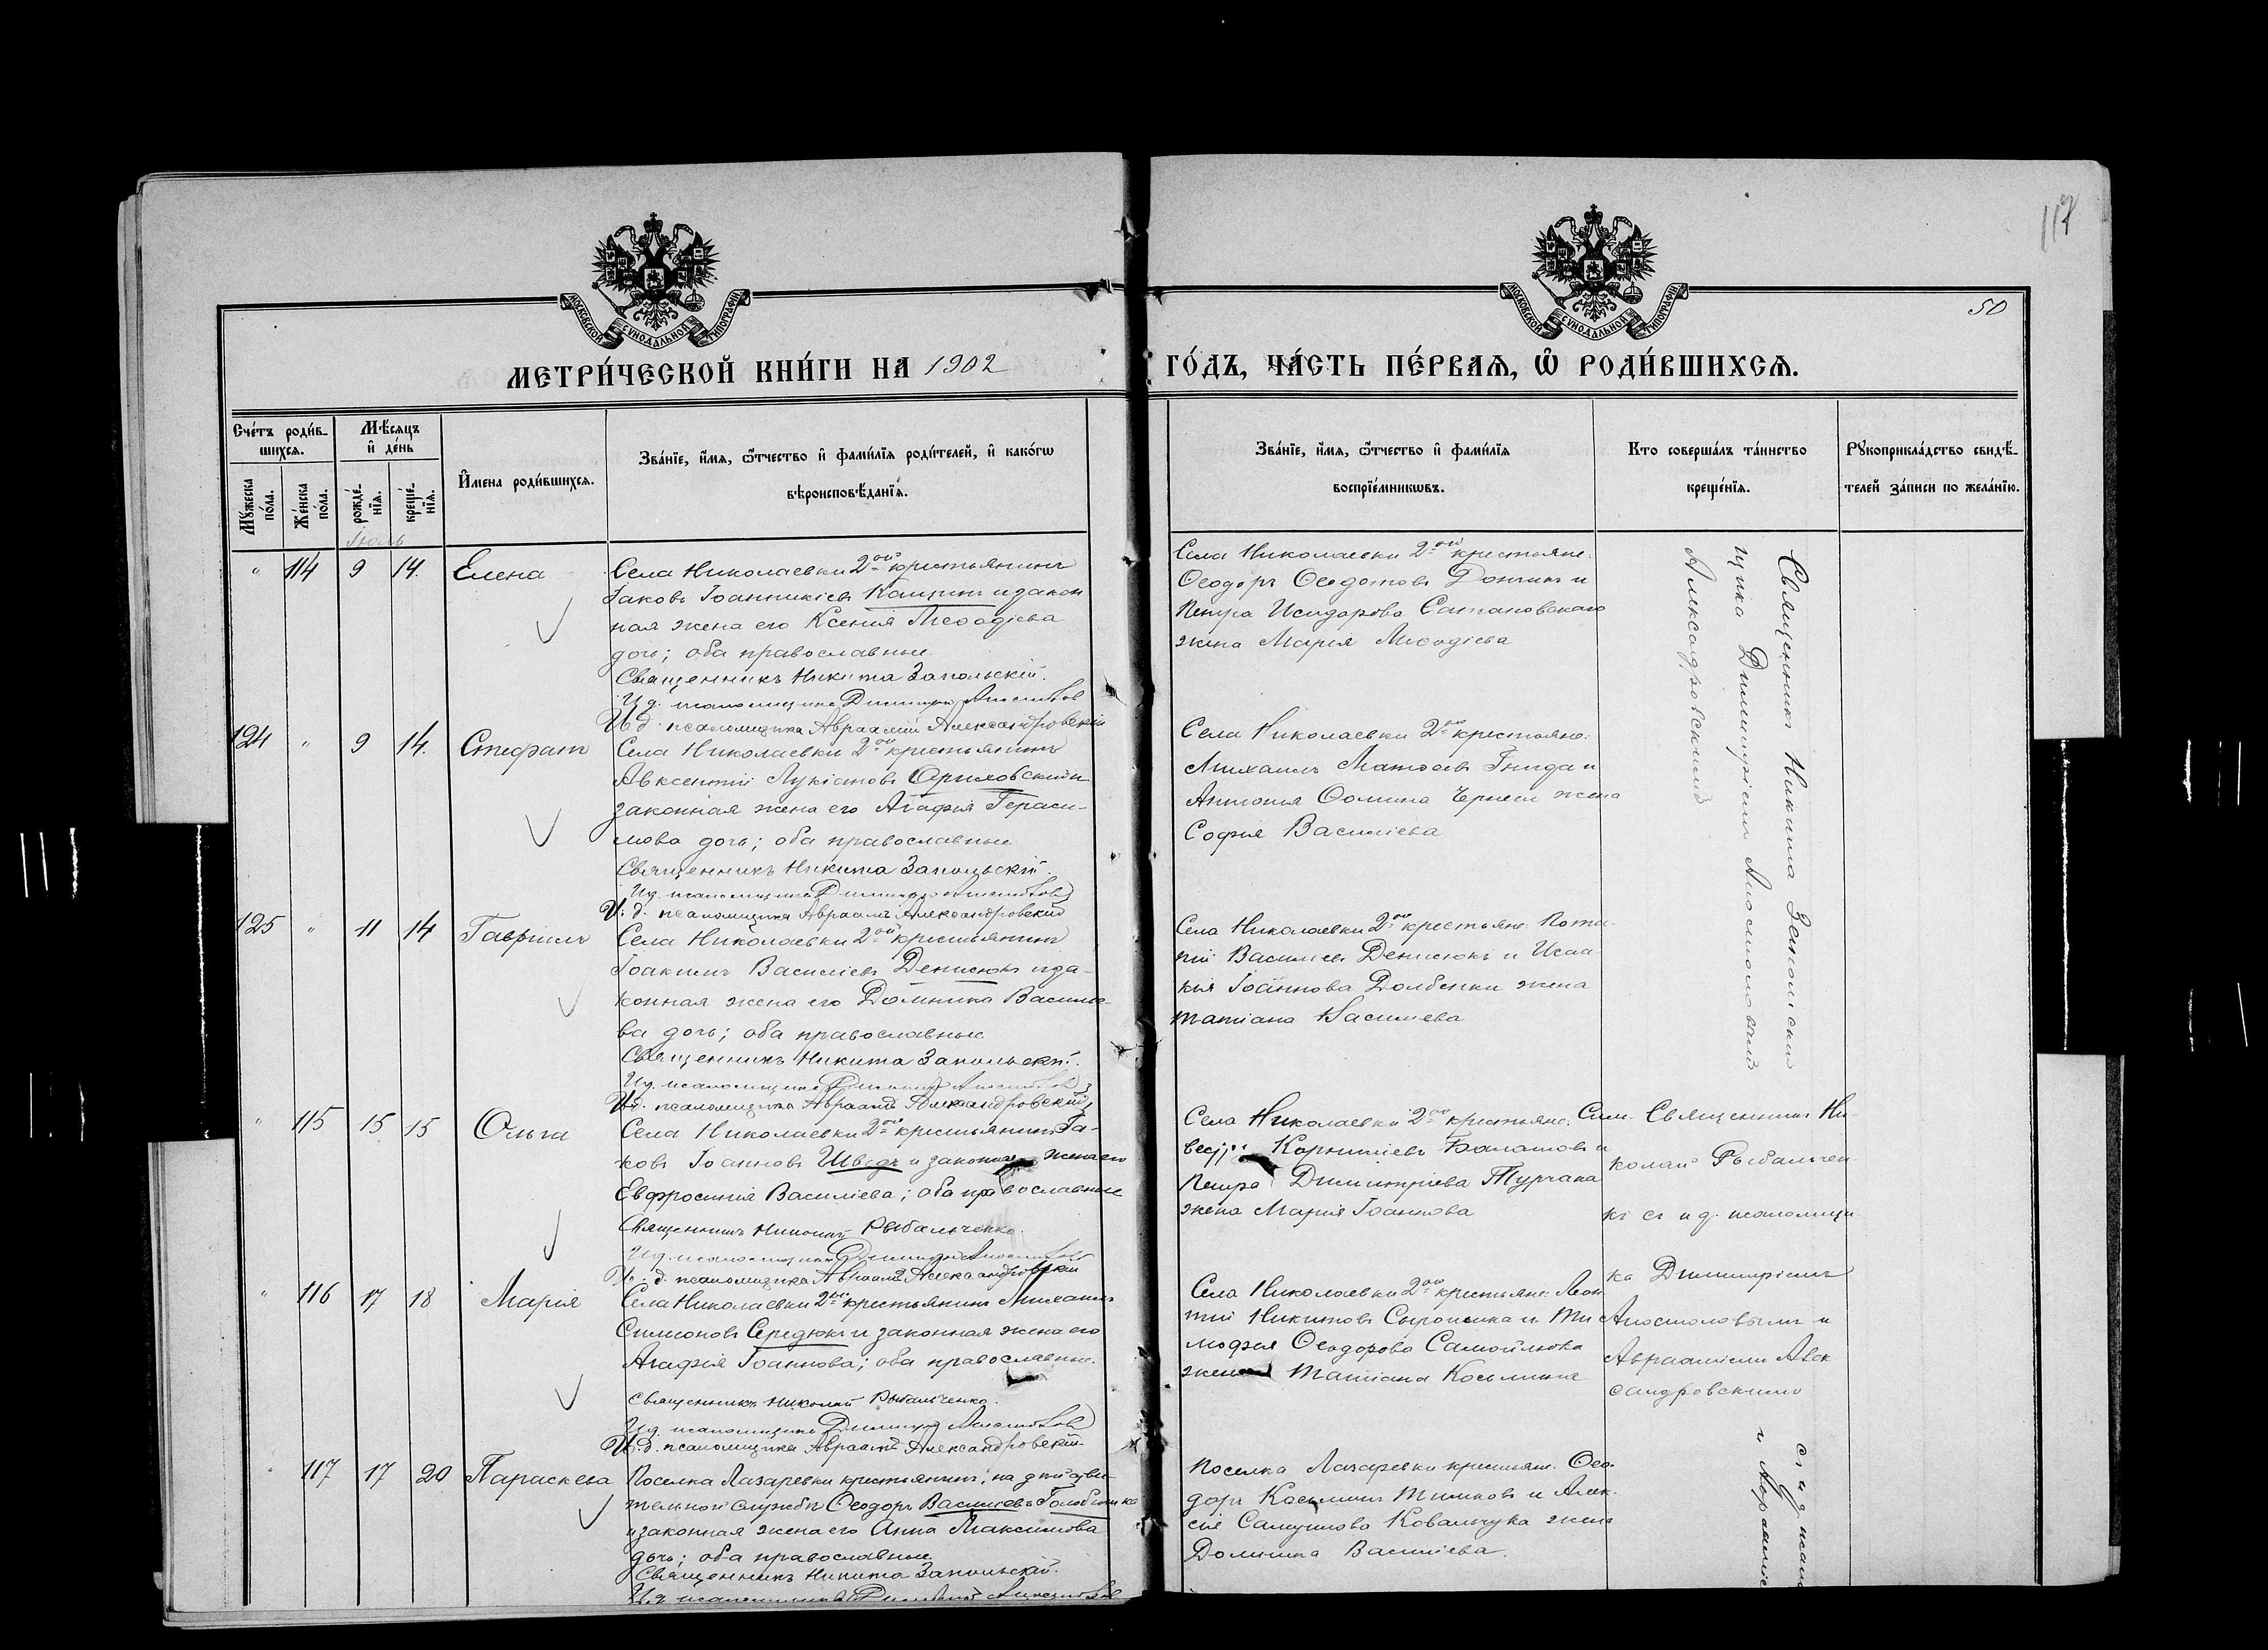 117
50
МОСКОВСКОЙ СѴНОДАЛЬНОЙ ТИПОГРАФІИ
МОСКОВСКОЙ СѴНОДАЛЬНОЙ ТИПОГРАФІИ
МЕТРИ́ЧЕСКОЙ КНИ́ГИ НА 1902 ГО́ДЪ, ЧА́СТЬ ПЕ́РВАѦ, Ѡ҆ РОДИ́ВШИХСѦ.
Счéтъ роди́в-
шихсѧ.
Мꙋ́жеска по́ла.
Же́нска по́ла.
Мѣ́сѧцъ и҆ де́нь
рожде́-нїѧ.
креще́-нїѧ.
И҆мена роди́вшихсѧ.
Зва́нїе, и҆́мѧ, ѻ҆́тчество и҆ фами́лїѧ роди́телей, и҆ како́гѡ
вѣроисповѣ́данїѧ.
Зва́нїе, и҆́мѧ, ѻ҆́тчество и҆ фами́лїѧ
воспрїе́мникѡвъ.
Кто соверша́лъ та́инство
креще́нїѧ.
Рꙋкоприкла́дство свидѣ́-
телей за́писи по жела́нїю.
Іюль
" 114 9 14. Елена
Села Николаевки 2ой крестьянинъ
Іаковъ Іоанникіевъ и закон
ная жена его Ксенія Меѳодіева
дочь; оба православные.
Священникъ Никита Запольскій.
И.д. псаломщика Димитрій Апостоловъ
И.д. псаломщика Авраамій Александровскій
Села Николаевки 2ой крестьяне:
Ѳеодоръ Ѳеодотовъ Дончикъ и
Петра Исидорова Сатановскаго
жена Марія Меѳодіева
Священникъ Никита Запольскій
щика Димитріемъ Апостоловымъ
Александровскимъ
124 " 9 14. Стефанъ
Села Николаевки 2ой крестьянинъ
Авксентій Лукіановъ Ориловскій и
законная жена его Агафія Гераси-
мова дочь; оба православные
Священникъ Никита Запольскій.
И.д. псаломщика Димитрій Апостоловъ
И.д. псаломщика Авраамъ Александровскій
Села Николаевки 2ой крестьяне:
Михаилъ Матѳеевъ Гнида и
Антонія Ѳомина Чернеги жена
Софія Василіева
125 " 11 14 Гавріилъ
Села Николаевки 2ой крестьянинъ
Іоакимъ Василіевъ Денисюкъ и за-
конная жена его Домника Василіе-
ва дочь; оба православные
Священникъ Никита Запольскій.
И.д. псаломщика Димитрій Апостоловъ
И.д. псаломщика Авраамій Александровскій
Села Николаевки 2ой крестьяне: Пота-
пій Василіевъ Денисюкъ и Исаа-
кія Іоаннова Долбенки жена
Татіана Василіева
" 115 15 15 Ольга
Села Николаевки 2ой крестьянинъ Іа-
ковъ Іоанновъ Шведъ и законная жена его
Евфросинія Василіева; оба православные
Священникъ Николай Рыбальченко.
И.д. псаломщика Димитрій Апостоловъ
И.д. псаломщика Авраамій Александровскій
Села Николаевки 2ой крестьяне:
Корниліевъ и
Петра Димитріева Турчака
жена Марія Іоаннова
Священникъ Ни-
колай Рыбальчен-
ко съ и.д. псаломщи-
ка Димитріемъ
Апостоловымъ и
Аврааміемъ Алек-
сандровскимъ
" 116 17 18 Марія
Села Николаевки 2ой крестьянинъ Михаилъ
Симеоновъ Середюкъ и законная жена его
Агафія Іоаннова; оба православные.
Священникъ Николай Рыбальченко.
И.д. псаломщика Димитрій Апостоловъ
И.д. псаломщика Авраамій Александровскій
Села Николаевки 2ой крестьяне: Леон
тій Никитовъ и Ти
моѳея Ѳеодорова Самойлюка
жена Татіана Косьмина
117 17 20 Параскева
Поселка Лазаревки крестьянинъ, на дѣйстви-
тельной службѣ Ѳеодоръ Василіевъ
и законная жена его Анна Максимова
дочь; оба православные.
Священникъ Никита Запольскій.
И.д. псаломщика Димитрій Апостоловъ
Поселка Лазаревки крестьяне: Ѳео-
доръ Косьминъ и Алек-
сія Самуилова Ковальчука жена
Домника Василіева.
съ и.д. псалом
и Аврааміе